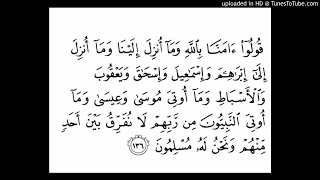 uploaded in HD @ TunesToTube.com
قُولُوٓا۟ ءَامَنَّا بِٱللَّهِ وَمَآ أُنزِلَ إِلَيْنَا وَمَآ أُنزِلَ
إِلَىٰٓ إِبْرَٰهِـۧمَ وَإِسْمَٰعِيلَ وَإِسْحَٰقَ وَيَعْقُوبَ
وَٱلْأَسْبَاطِ وَمَآ أُوتِىَ مُوسَىٰ وَعِيسَىٰ وَمَآ
أُوتِىَ ٱلنَّبِيُّونَ مِن رَّبِّهِمْ لَا نُفَرِّقُ بَيْنَ أَحَدٍ
مِّنْهُمْ وَنَحْنُ لَهُۥ مُسْلِمُونَ ١٣٦